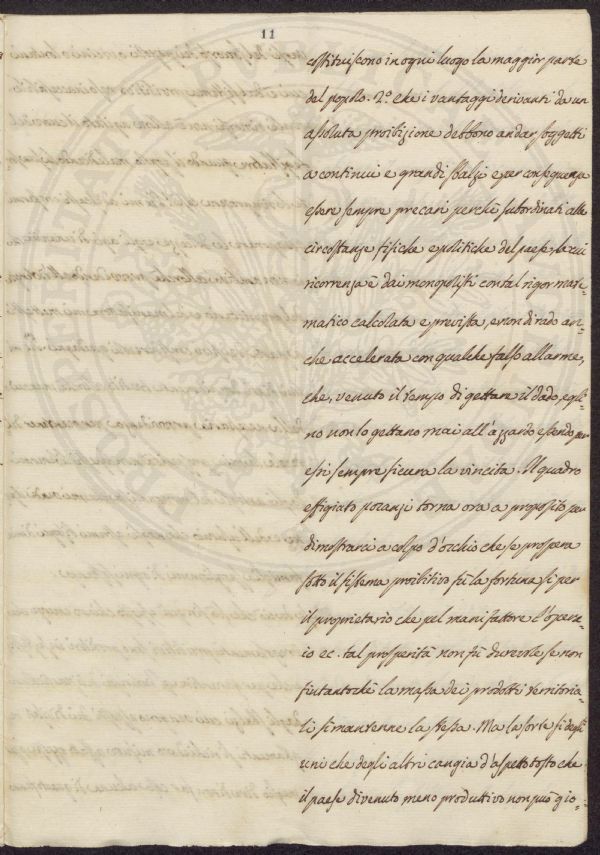 11
costituiscono in ogni luogo la maggior parte
del popolo. 2.° che i vantaggi derivanti da un
assoluta proibizione debbono andar soggetti
a continui e grandi sbalzi e per conseguenza
essere sempre precari perchè subordinati alle
circostanze fisiche e politiche del paese, la cui
ricorrenza è dai monopolisti con tal rigor mate-
matico calcolata e prevista, e non di rado an-
che accelerata con qualche falso allarme,
che, venuto il tempo di gettare il dado, egli-
no non lo gettano mai all'azzardo essendo per
essi sempre sicura la vincita. Il quadro
effigiato pocanzi torna ora a proposito per
dimostrarci a colpo d'occhio che se prospera
sotto il sistema proibitivo fù la fortuna sì per
il proprietario che pel manifattore l'opera-
io ec. tal prosperità non fù durevole se non
fintantochè la massa dei prodotti territoria-
li si mantenne la stessa. Ma la sorte sì degli
uni che degli altri cangia d'aspetto tosto che
il paese divenuto meno produttivo non può gio-